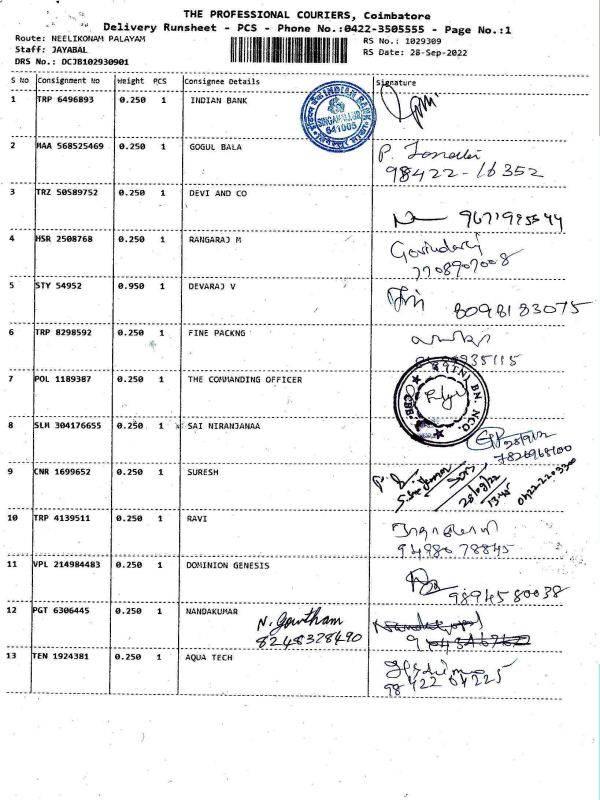 THE PROFESSIONAL COURIERS, Coimbatore
Delivery Runsheet - PCS - Phone No.:0422-3505555 - Page No.:1
Route: NEELIKONAM PALAYAM
Staff: JAYABAL
DRS No.: DCJB102930901
RS No.: 1029309
RS Date: 28-Sep-2022
S No Consignment No Weight PCS Consignee Details Signature
1 TRP 6496893 0.250 1 INDIAN BANK
INDIAN BANK SINGANALLUR 641005
2 MAA 568525469 0.250 1 GOGUL BALA
98422-16352
3 TRZ 50589752 0.250 1 DEVI AND CO
4 HSR 2508768 0.250 1 RANGARAJ M
Govindaraj
7708907008
5 STY 54952 0.950 1 DEVARAJ V
8098183075
6 TRP 8298592 0.250 1 FINE PACKNG
35115
7 POL 1189387 0.250 1 THE COMMANDING OFFICER
(TN) BN. NCC
CBE
8 SLM 304176655 0.250 1 SAI NIRANJANAA
28/9/22
9 CNR 1699652 0.250 1 SURESH
28/09/22
13:45
10 TRP 4139511 0.250 1 RAVI
94980 78845
11 VPL 214984483 0.250 1 DOMINION GENESIS
98945 80038
12 PGT 6306445 0.250 1 NANDAKUMAR
N. Gowtham
8248328490
13 TEN 1924381 0.250 1 AQUA TECH
98422 04225